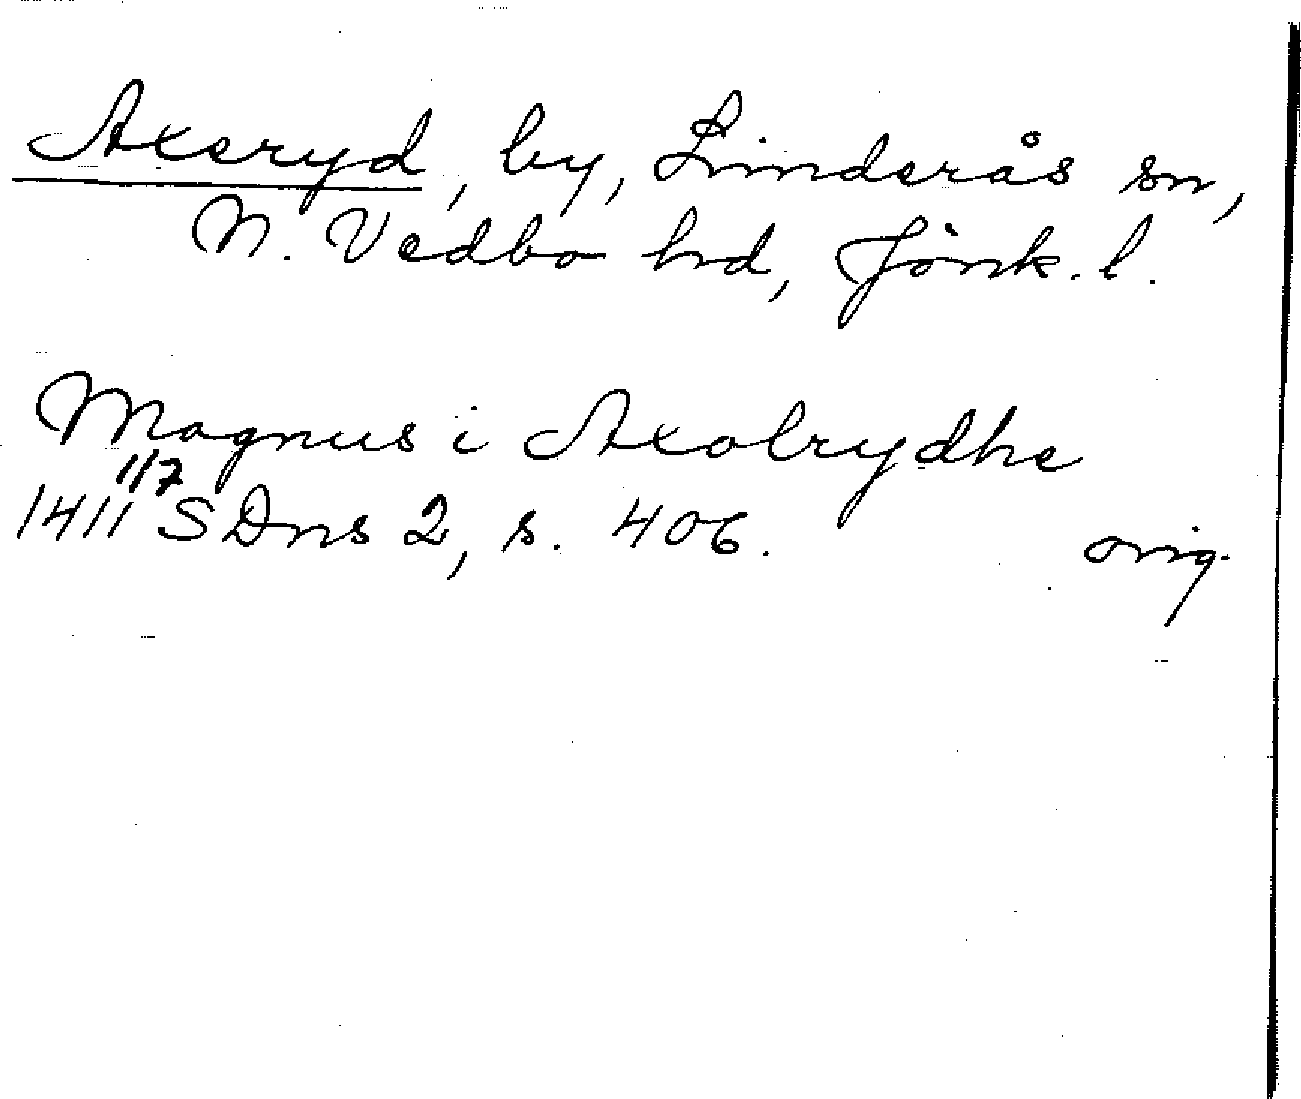 Axeryd, by, Linderås sn,
N. Vedbo hd, Jönk. l.
Magnus i Axolrydhe
1411 1/7 SDns 2, s. 406. orig.